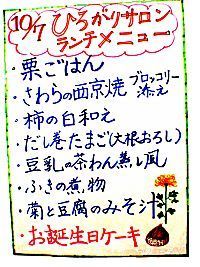 10/7 ひろがりサロン
ランチメニュー
・栗ごはん
・さわらの西京焼 ブロッコリー添え
・柿の白和え
・だし巻たまご(大根おろし)
・豆乳の茶わん蒸し風
・ふきの煮物
・菊と豆腐のみそ汁
・お誕生日ケーキ